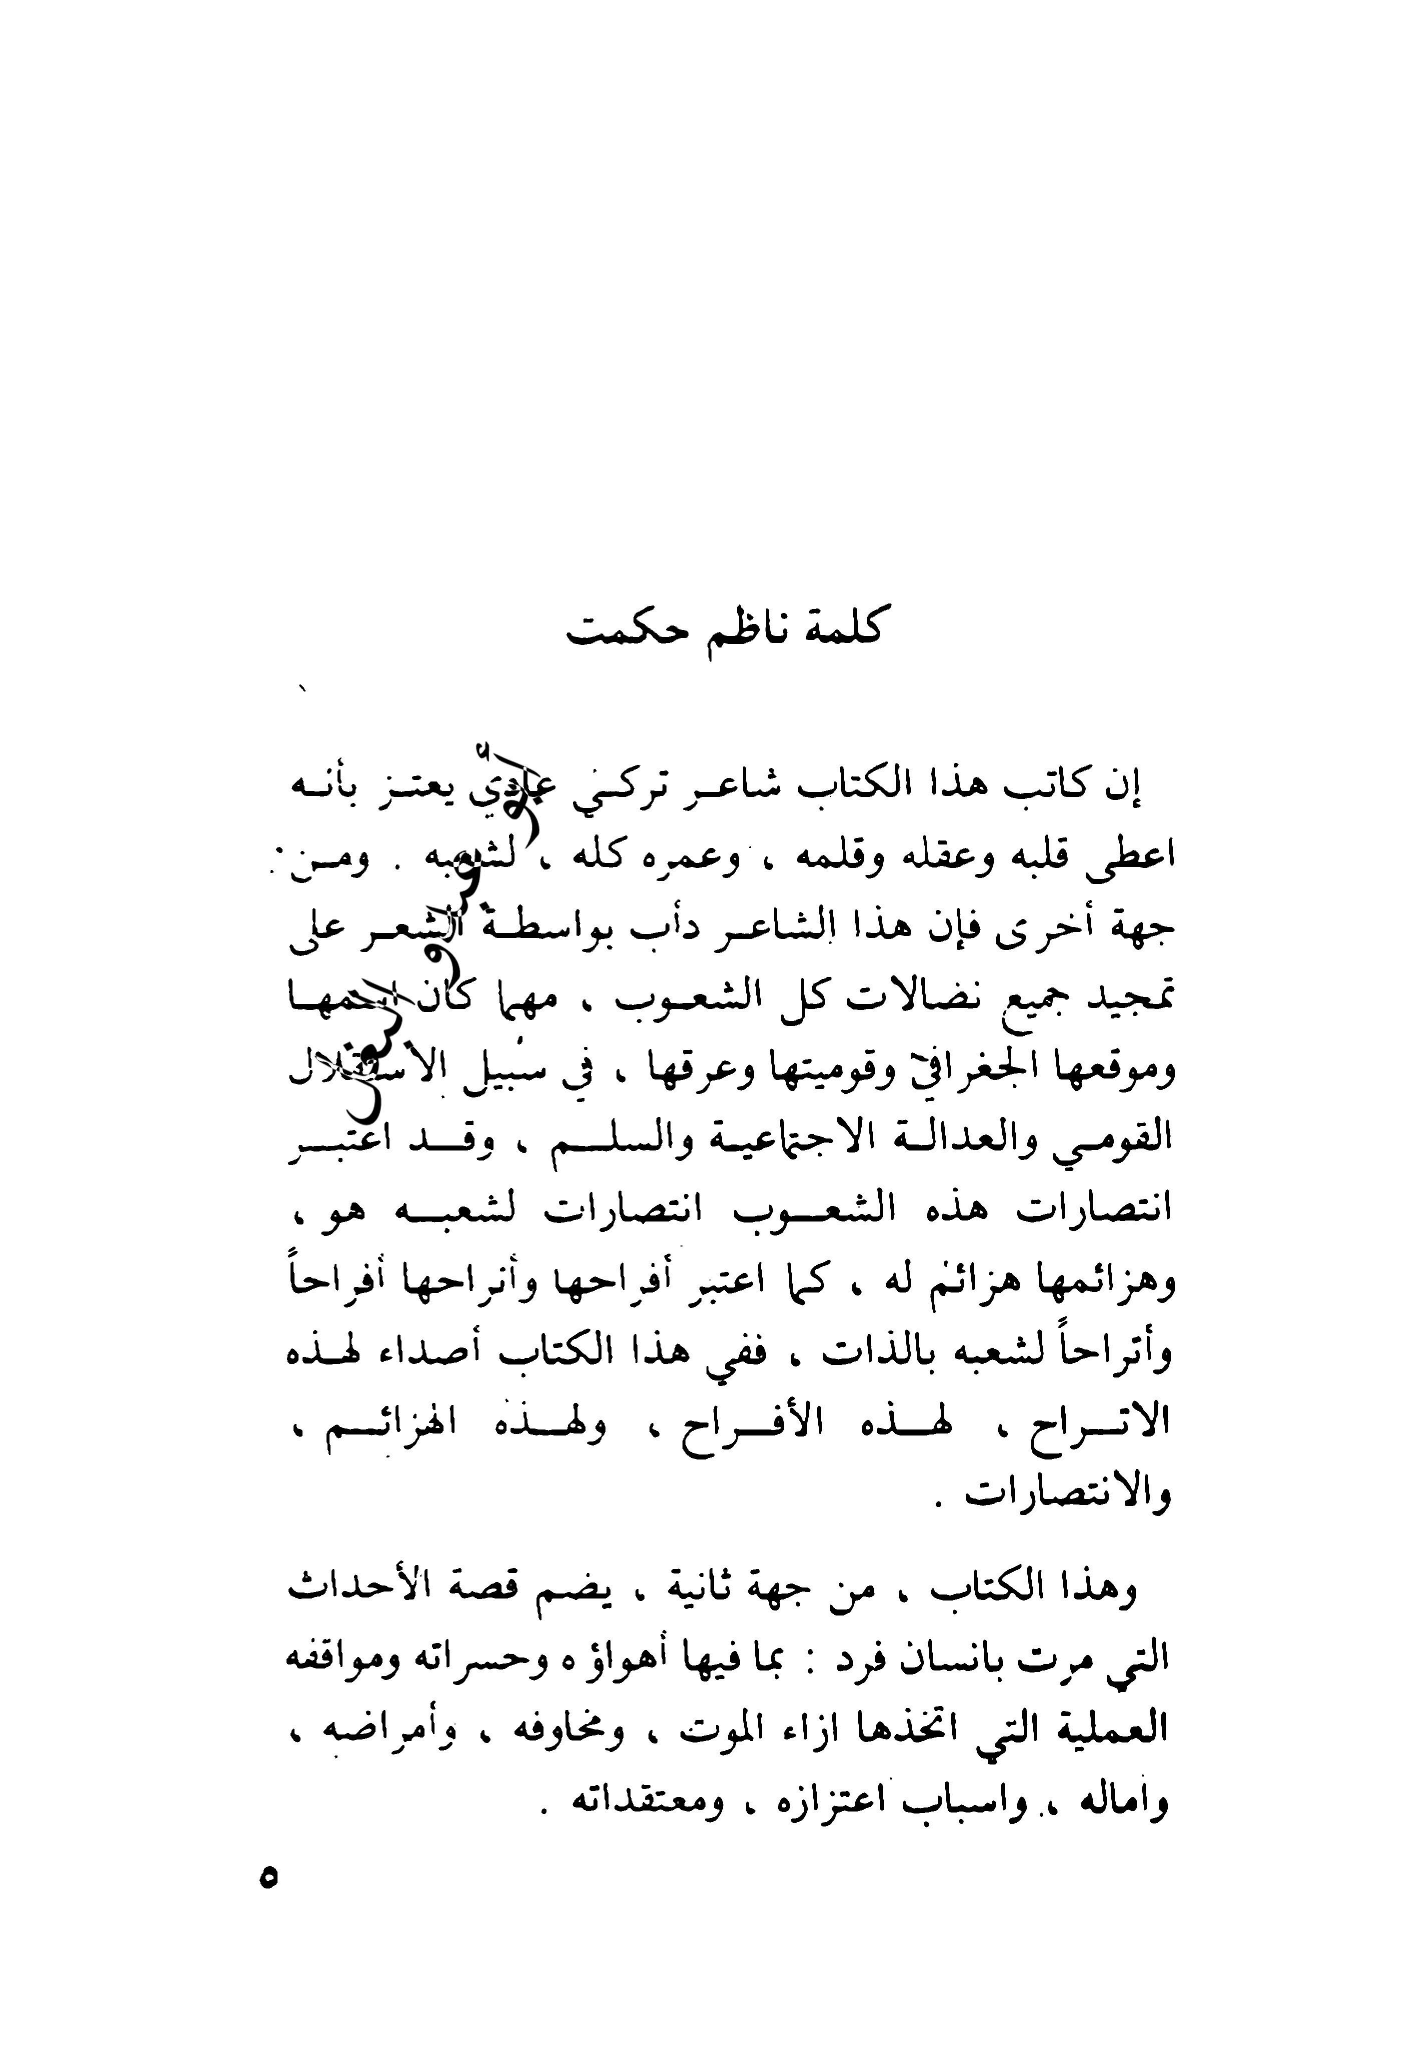 كلمة ناظم حكمت
إن كاتب هذا الكتاب شاعر تركي عادي يعتز بأنه
اعطى قلبه وعقله وقلمه ، وعمره كله ، لشعبه . ومن
جهة أخرى فإن هذا الشاعر دأب بواسطة الشعر على
تمجيد جميع نضالات كل الشعوب ، مهما كان اسمها
وموقعها الجغرافي وقوميتها وعرقها ، في سبيل الاستقلال
القومي والعدالة الاجتماعية والسلم ، وقد اعتبر
انتصارات هذه الشعوب انتصارات لشعبه هو ،
وهزائمها هزائم له ، كما اعتبر أفراحها وأتراحها أفراحاً
وأتراحاً لشعبه بالذات ، ففي هذا الكتاب أصداء لهذه
الاتراح ، لهذه الأفراح ، ولهذه الهزائم ،
والانتصارات .
وهذا الكتاب ، من جهة ثانية ، يضم قصة الأحداث
التي مرت بانسان فرد : بما فيها أهواؤه وحسراته ومواقفه
العملية التي اتخذها ازاء الموت ، ومخاوفه ، وأمراضه ،
وآماله ، واسباب اعتزازه ، ومعتقداته .
٥